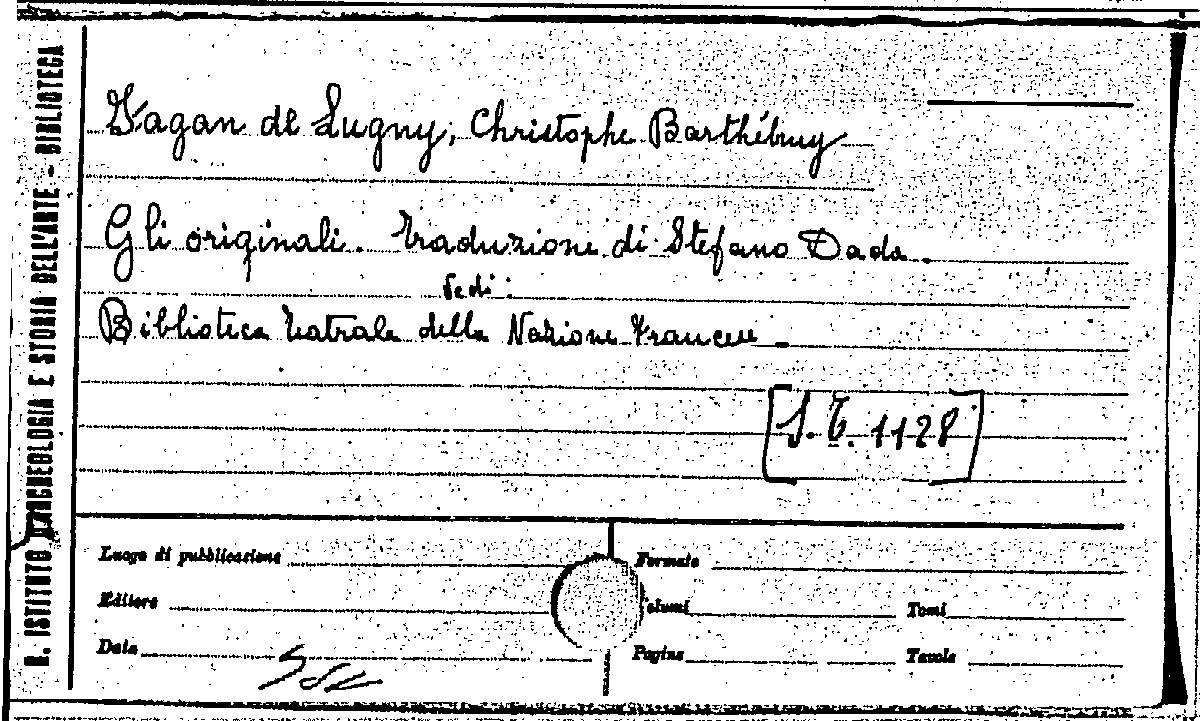 R. ISTITUTO D'ARCHEOLOGIA E STORIA DELL'ARTE - BIBLIOTECA
Fagan de Lugny, Christophe Barthélmy
Gli originali. Traduzione di Stefano Dada.
Vedi:
Biblioteca teatrale della Nazione Francese
[S. T. 1128]
Luogo di pubblicazione
Formato
Editore
Volumi
Tomi
Data
Pagine
Tavole